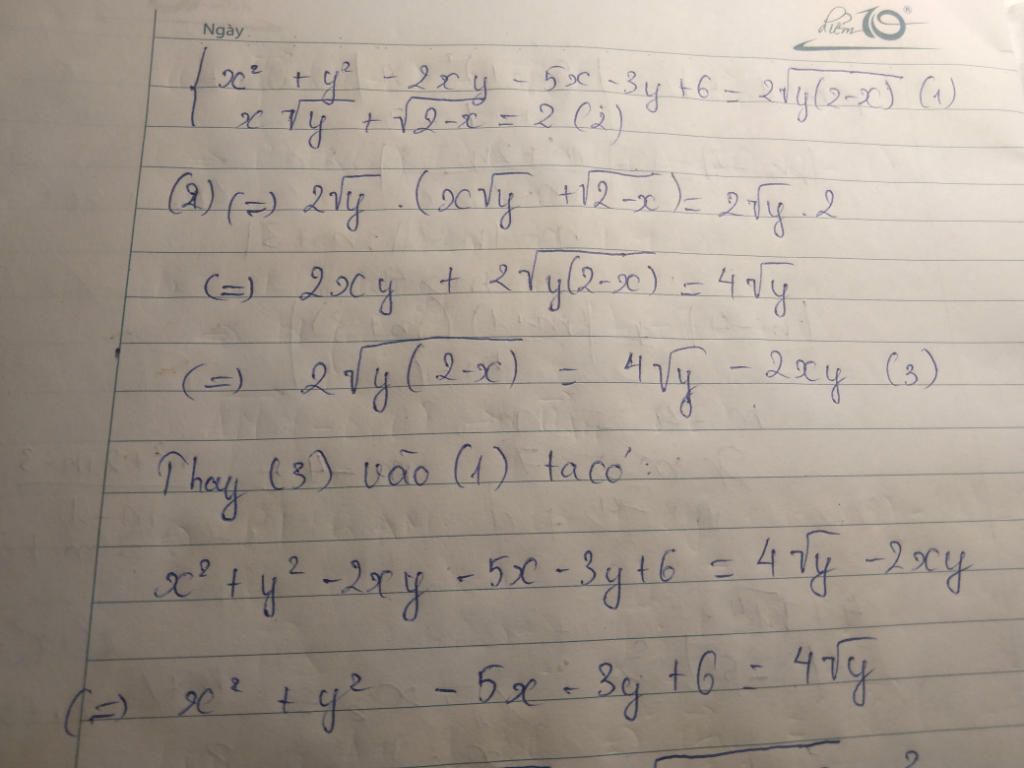 Ngày
Điểm 10
x² + y² - 2xy - 5x - 3y + 6 = 2√(y(2-x)) (1)
x√y + √(2-x) = 2 (2)
(2) (=) 2√y . (x√y + √(2-x)) = 2√y . 2
(=) 2xy + 2√(y(2-x)) = 4√y
(=) 2√(y(2-x)) = 4√y - 2xy (3)
Thay (3) vào (1) ta có:
x² + y² - 2xy - 5x - 3y + 6 = 4√y - 2xy
(=) x² + y² - 5x - 3y + 6 = 4√y